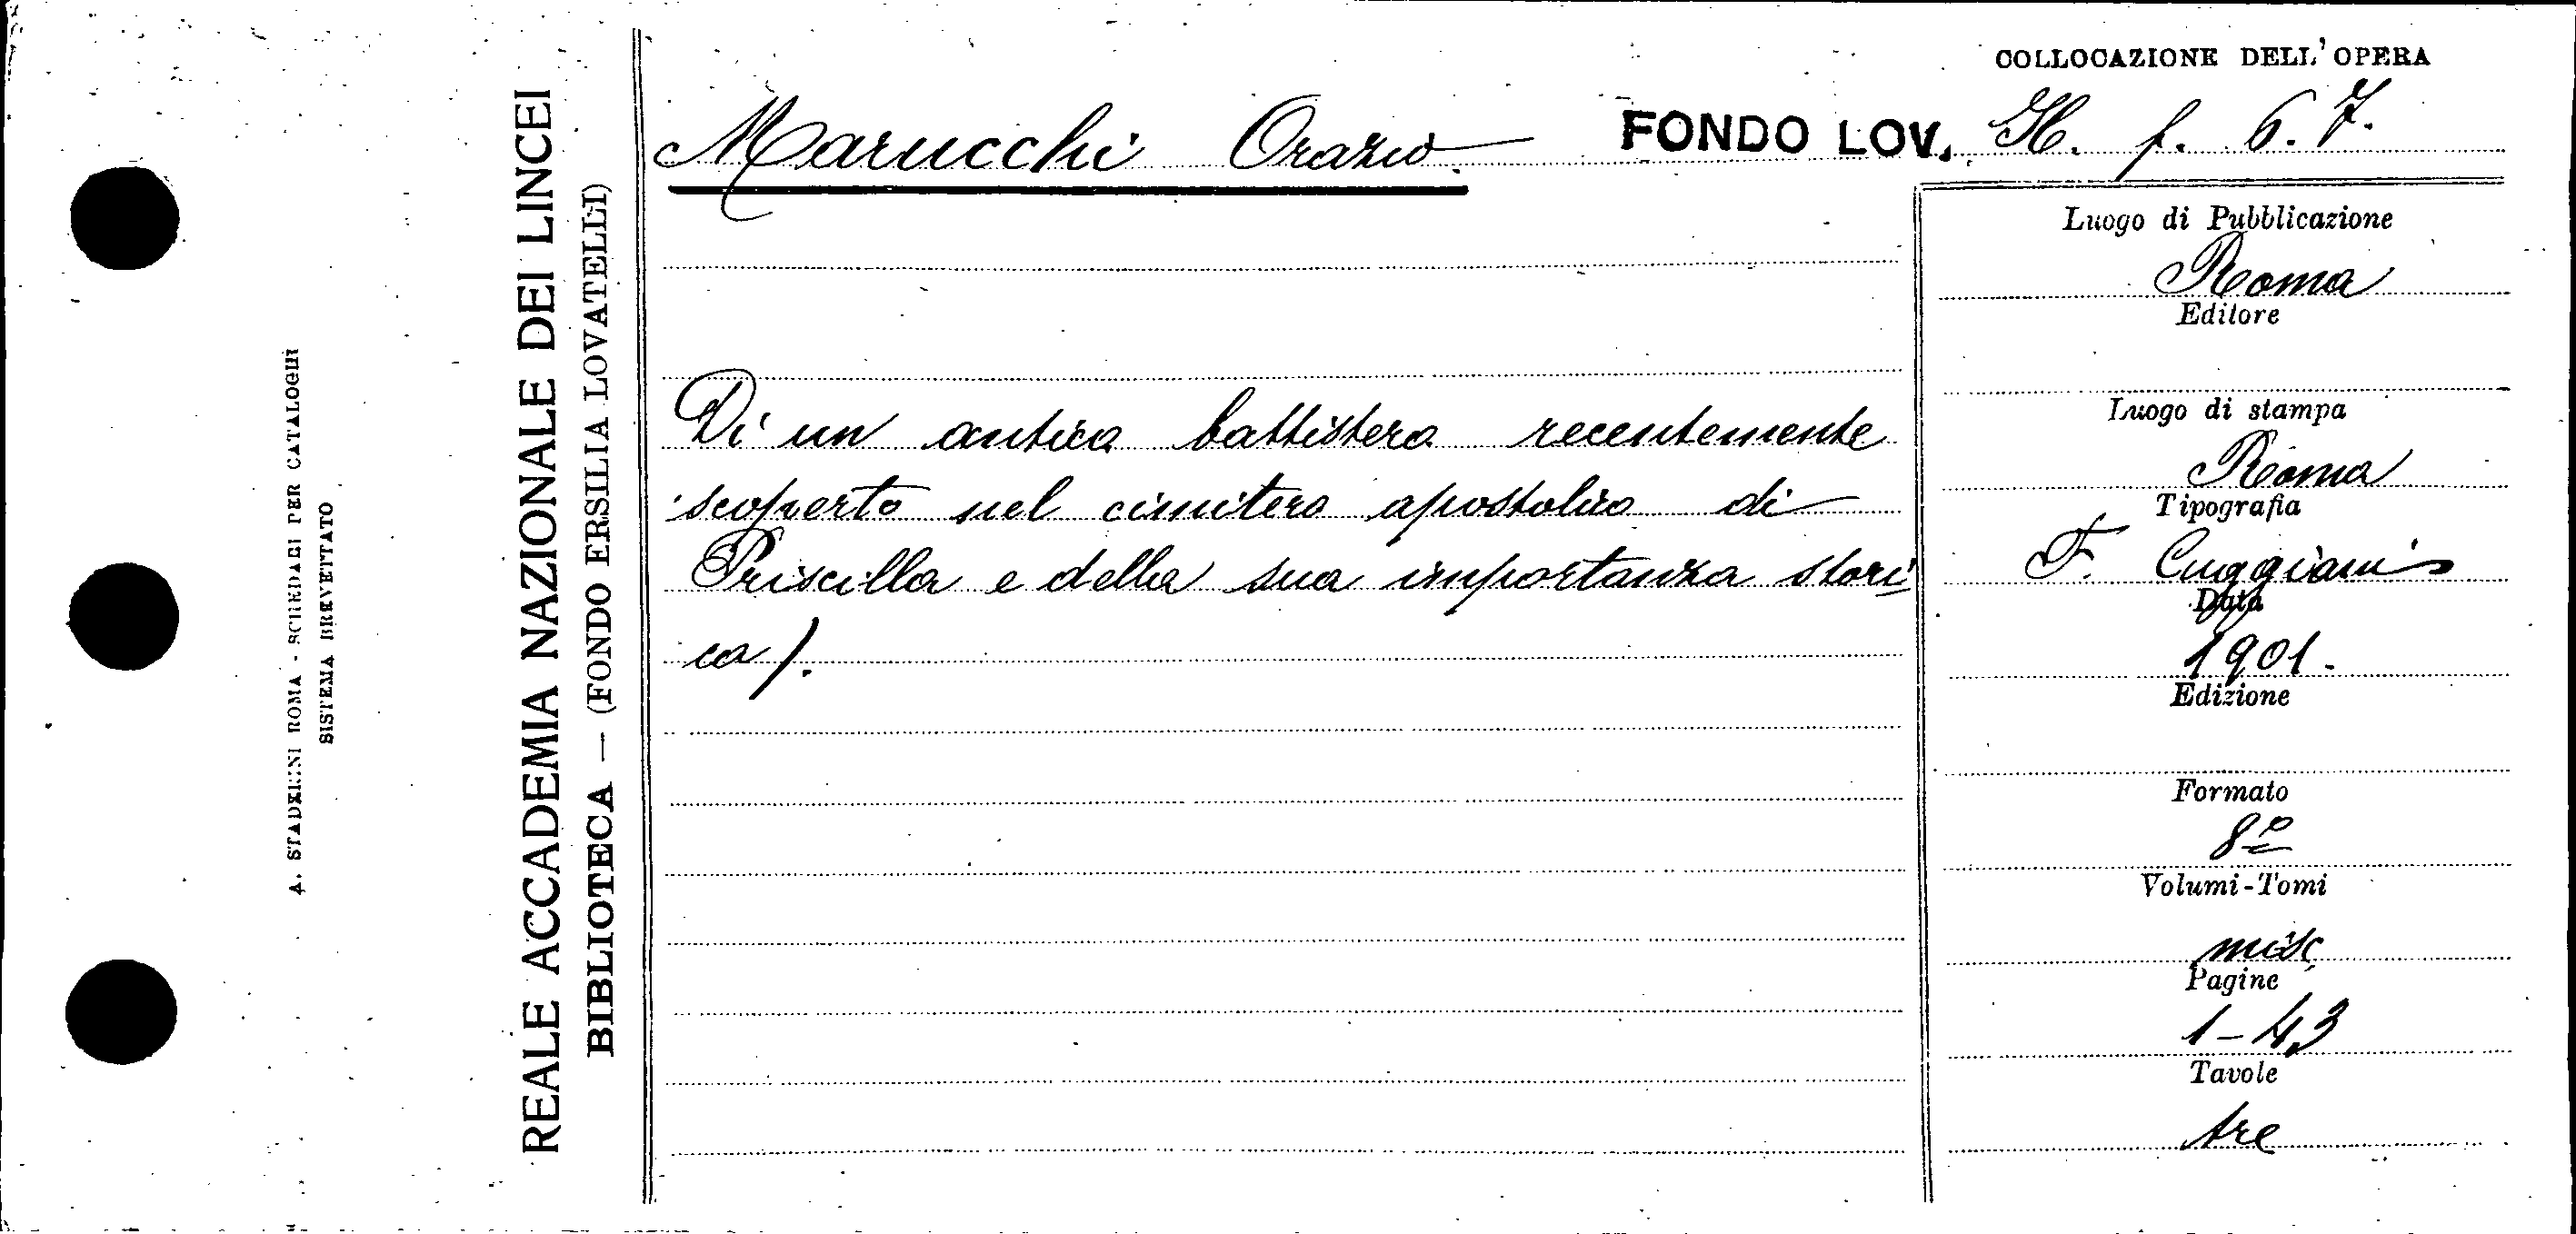 COLLOCAZIONE DELL'OPERA
Marucchi Orazio. FONDO LOV. H. f. 6. 7.
Di un antico battistero recentemente
scoperto nel cimitero apostolico di
Priscilla e della sua importanza stori
ca /.
Luogo di Pubblicazione
Roma
Editore
Luogo di stampa
Roma
Tipografia
F. Cuggiani
Data
1901.
Edizione
Formato
8º
Volumi-Tomi
misc
Pagine
1-43
Tavole
tre
REALE ACCADEMIA NAZIONALE DEI LINCEI
BIBLIOTECA — (FONDO ERSILIA LOVATELLI)
A. STADERINI ROMA - SCHEDARI PER CATALOGHI
SISTEMA BREVETTATO